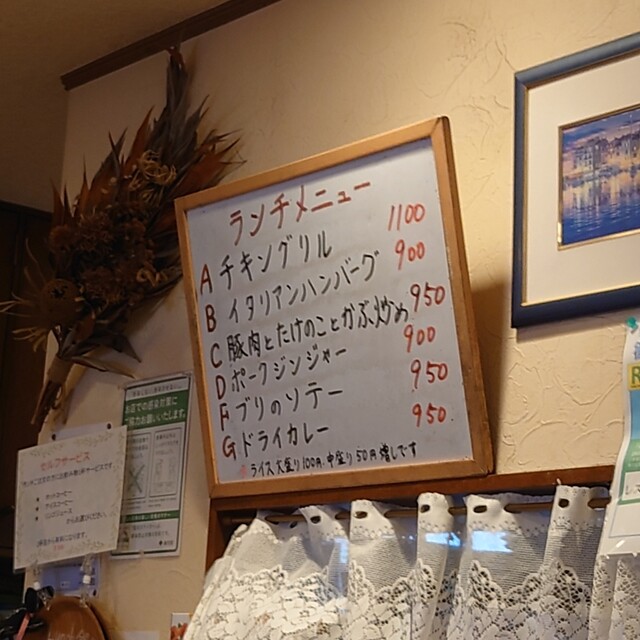 ランチメニュー
A チキングリル 1100
B イタリアンハンバーグ 900
C 豚肉とたけのことかぶ炒め 950
D ポークジンジャー 900
F ブリのソテー 950
G ドライカレー 950
ライス大盛り100円 中盛り50円増しです
セルフサービス
お店での感染対策に
ご協力お願いいたします。